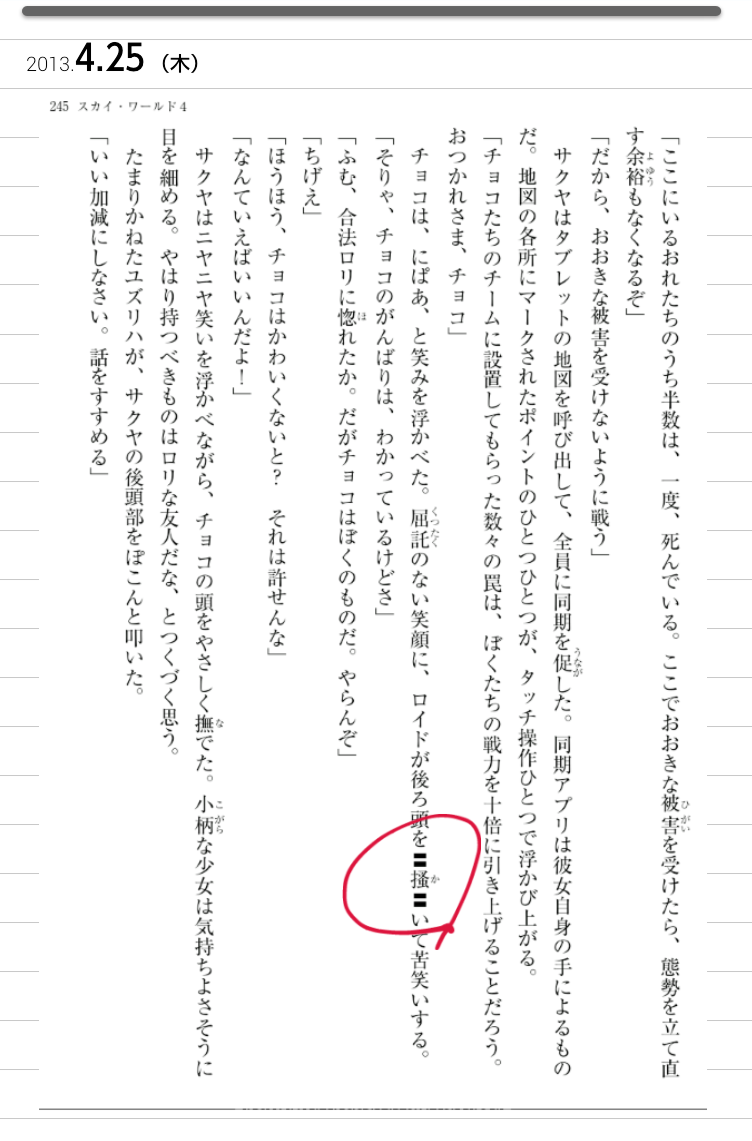 2013.4.25（木）
245 スカイ・ワールド4
「ここにいるおれたちのうち半数は、一度、死んでいる。ここでおおきな被害を受けたら、態勢を立て直
す余裕もなくなるぞ」
「だから、おおきな被害を受けないように戦う」
サクヤはタブレットの地図を呼び出して、全員に同期を促した。同期アプリは彼女自身の手によるもの
だ。地図の各所にマークされたポイントのひとつひとつが、タッチ操作ひとつで浮かび上がる。
「チョコたちのチームに設置してもらった数々の罠は、ぼくたちの戦力を十倍に引き上げることだろう。
おつかれさま、チョコ」
チョコは、にぱあ、と笑みを浮かべた。屈託のない笑顔に、ロイドが後ろ頭を〓掻〓いて苦笑いする。
「そりゃ、チョコのがんばりは、わかっているけどさ」
「ふむ、合法ロリに惚れたか。だがチョコはぼくのものだ。やらんぞ」
「ちげえ」
「ほうほう、チョコはかわいくないと？　それは許せんな」
「なんていえばいいんだよ！」
サクヤはニヤニヤ笑いを浮かべながら、チョコの頭をやさしく撫でた。小柄な少女は気持ちよさそうに
目を細める。やはり持つべきものはロリな友人だな、とつくづく思う。
たまりかねたユズリハが、サクヤの後頭部をぽこんと叩いた。
「いい加減にしなさい。話をすすめる」